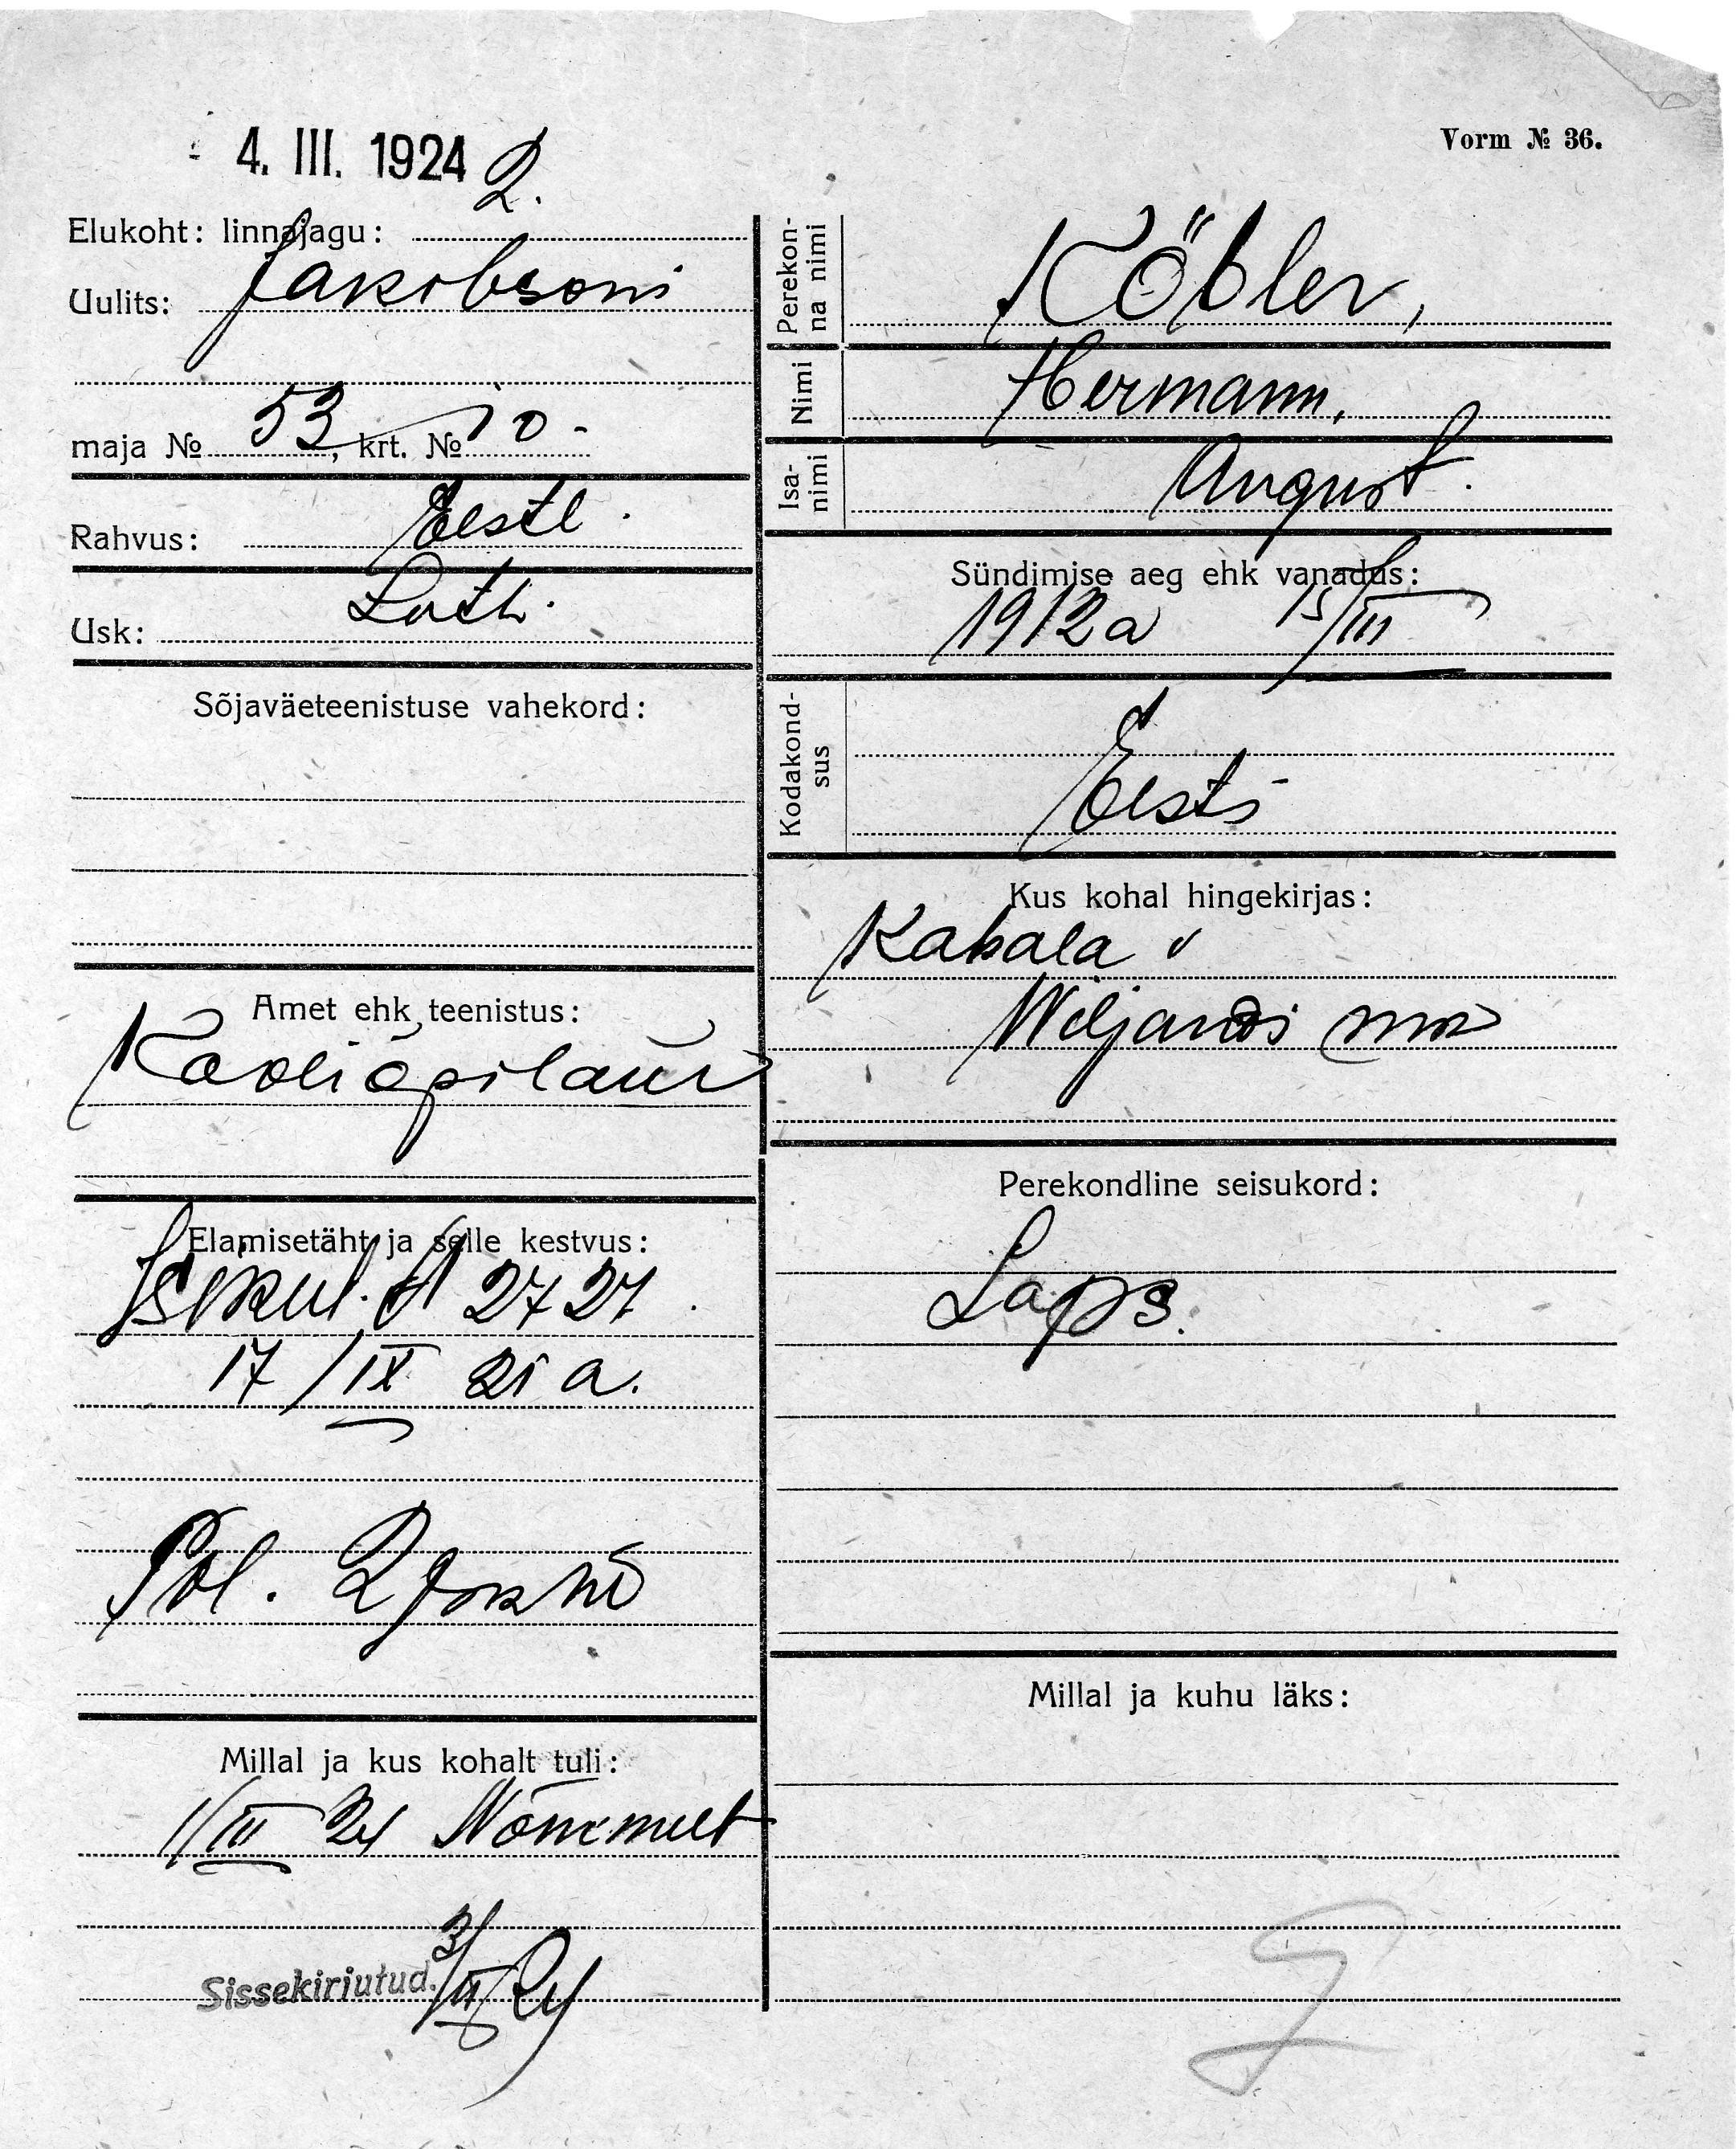 4. III. 1924
Vorm № 36.
Elukoht: linnajagu: 2.
Uulits: Jakobsoni
maja № 53, krt. № 10 -
Rahvus: Eestl.
Usk: Luth.
Sõjaväeteenistuse vahekord:
Amet ehk teenistus:
Kooliõpilane
Elamisetäht ja selle kestvus:
Isikut. A 2727
17/IX 21 a.
Pol. 2 jsk
Millal ja kus kohalt tuli:
1/III 24 Nõmmelt
Sissekirjutud. 3/III 24
Perekonna nimi
Köbler,
Nimi
Hermann,
Isanimi
August.
Sündimise aeg ehk vanadus:
1912 a 15/III
Kodakondsus
Eesti
Kus kohal hingekirjas:
Kabala v
Wiljandi mk
Perekondline seisukord:
Laps.
Millal ja kuhu läks: